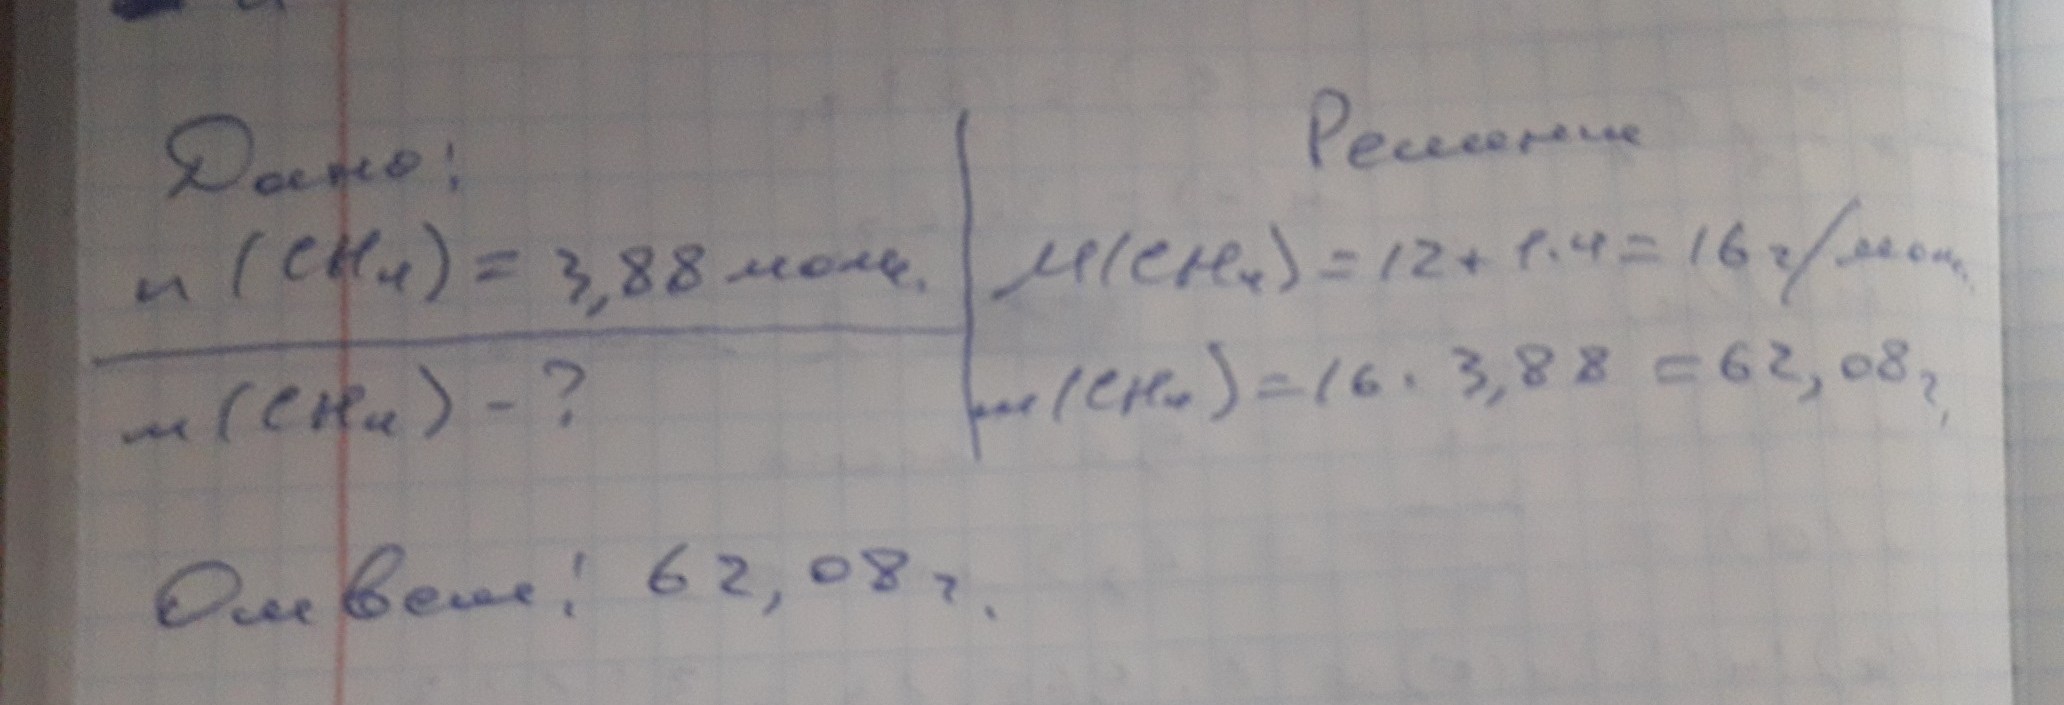 Дано:
n (CH₄) = 3,88 моль.
m (CH₄) - ?
Решение
M(CH₄) = 12 + 1·4 = 16 г/моль.
m (CH₄) = 16 · 3,88 = 62,08 г.
Ответ: 62,08 г.